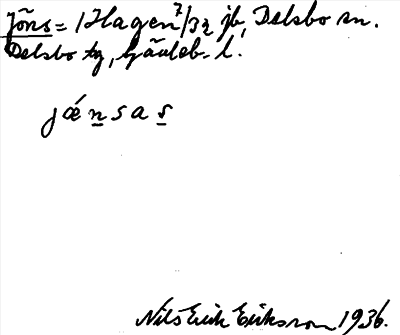 Jöns= /Hagen 7/32 jb, Delsbo sn.
Delsbo tg, Gävleb. l.
jǽnsas
Nils Erik Eriksson 1936.